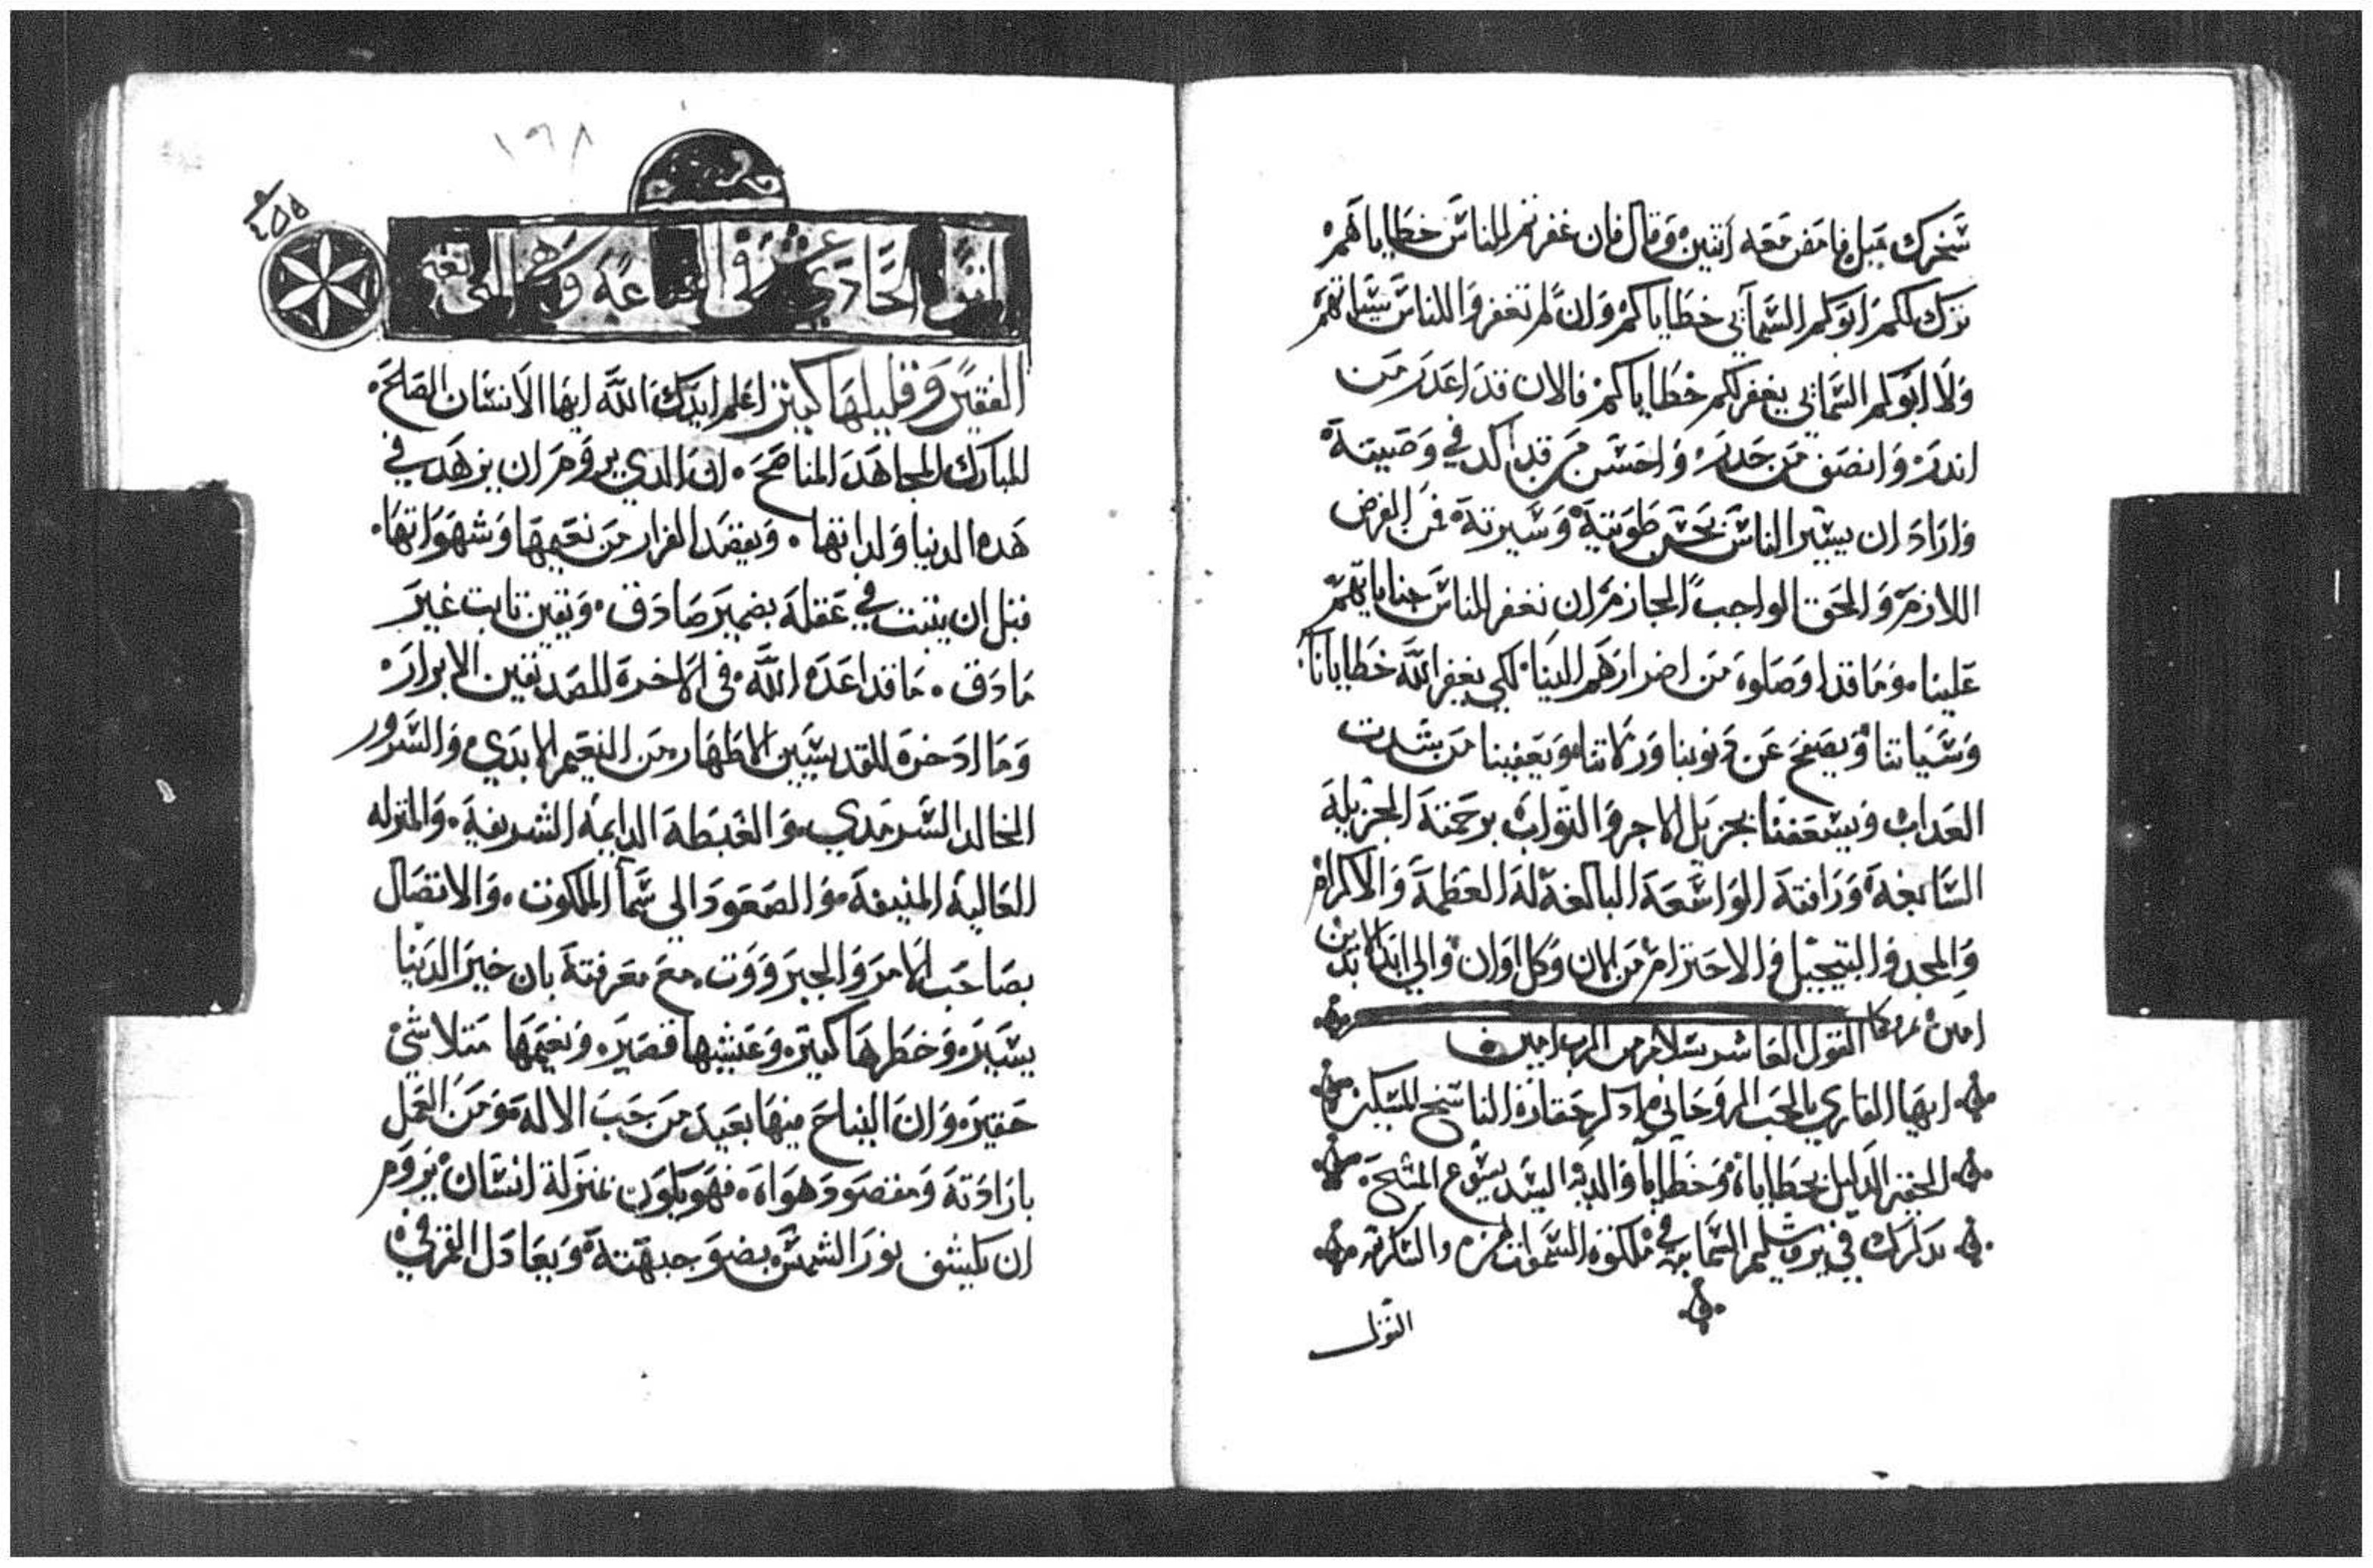 شخرك ميل فامض معه اثنين وقال فان غفرتم للناس خطاياهم
ترك لكم ابوكم السمآيي خطاياكم وان لم تغفروا للناس سياتهم
ولا ابوكم السمايي يغفر لكم خطاياكم فالان قد اعدر من
اندر وانصف من حدر واحسن من قد اكد في وصيته
واراد ان يسير الناس بحسن طويته وسيرته فمن الفرض
اللازم والحق الواجب الجازم ان نغفر للناس جناياتهم
علينا وما قد اوصلوه من اضرارهم الينا لكي يغفر الله خطايانا
وسياتنا ويصفح عن دنوبنا وزلاتنا ويعفينا من شدت
العداب ويسعفنا بجزيل الاجر والتواب برحمته الجزيله
السابغة ورافته الواسعة البالغة له العظمة والاكرام
والمجد والتبجيل والاحترام من الان وكل اوان والي ابد الابدين
امين
القول العاشر بسلام من الرب امين
ايها القاري بالحب الروحاني ادكر حقارة الناسخ المسكين
الحقير الدليل بخطاياه وخطايا والديه السيد يسوع المسيح
يدكرك في يروشليم السماييه في ملكوة السموات
القول
١٦٨
القول الحادي عشر في القناعة وهي التي
الفقير وقليلها كثير اعلم ايدك الله ايها الانسان الصالح
المبارك المجاهد المناصح ان الدي يروم ان يزهد في
هده الدنيا ولداتها ويقصد الفرار من نعيمها وشهواتها
قبل ان يثبت في عقله بضمير صادق ويقين تابت غير
مادق ما قد اعده الله في الاخرة للصديقين الابرار
وما ادخره للقديسين الاطهار من النعيم الابدي والسرور
الخالد السرمدي والغبطة الدايمة الشريفة والمنزله
العالية المنيفة والصعود الى سمآ الملكوت والاتصال
بصاحب الامر والجبرووت مع معرفته بان خير الدنيا
يسيره وخطرها كبيره وعيشها قصيره ونعيمها متلاشي
حقيره وان النباح منها بعيد من حب الاله ومن العمل
بارادته ومقصود هواه فهو يكون بمنزلة انسان يروم
ان يكشف نور الشمس بضو جبهته ويعادل القمر في